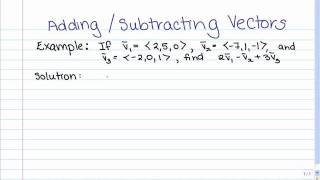 Adding / Subtracting Vectors
Example: If v̄₁ = <2,5,0>, v̄₂ = <-7,1,-1>, and
v̄₃ = <-2,0,1>, find 2v̄₁ - v̄₂ + 3v̄₃
Solution: